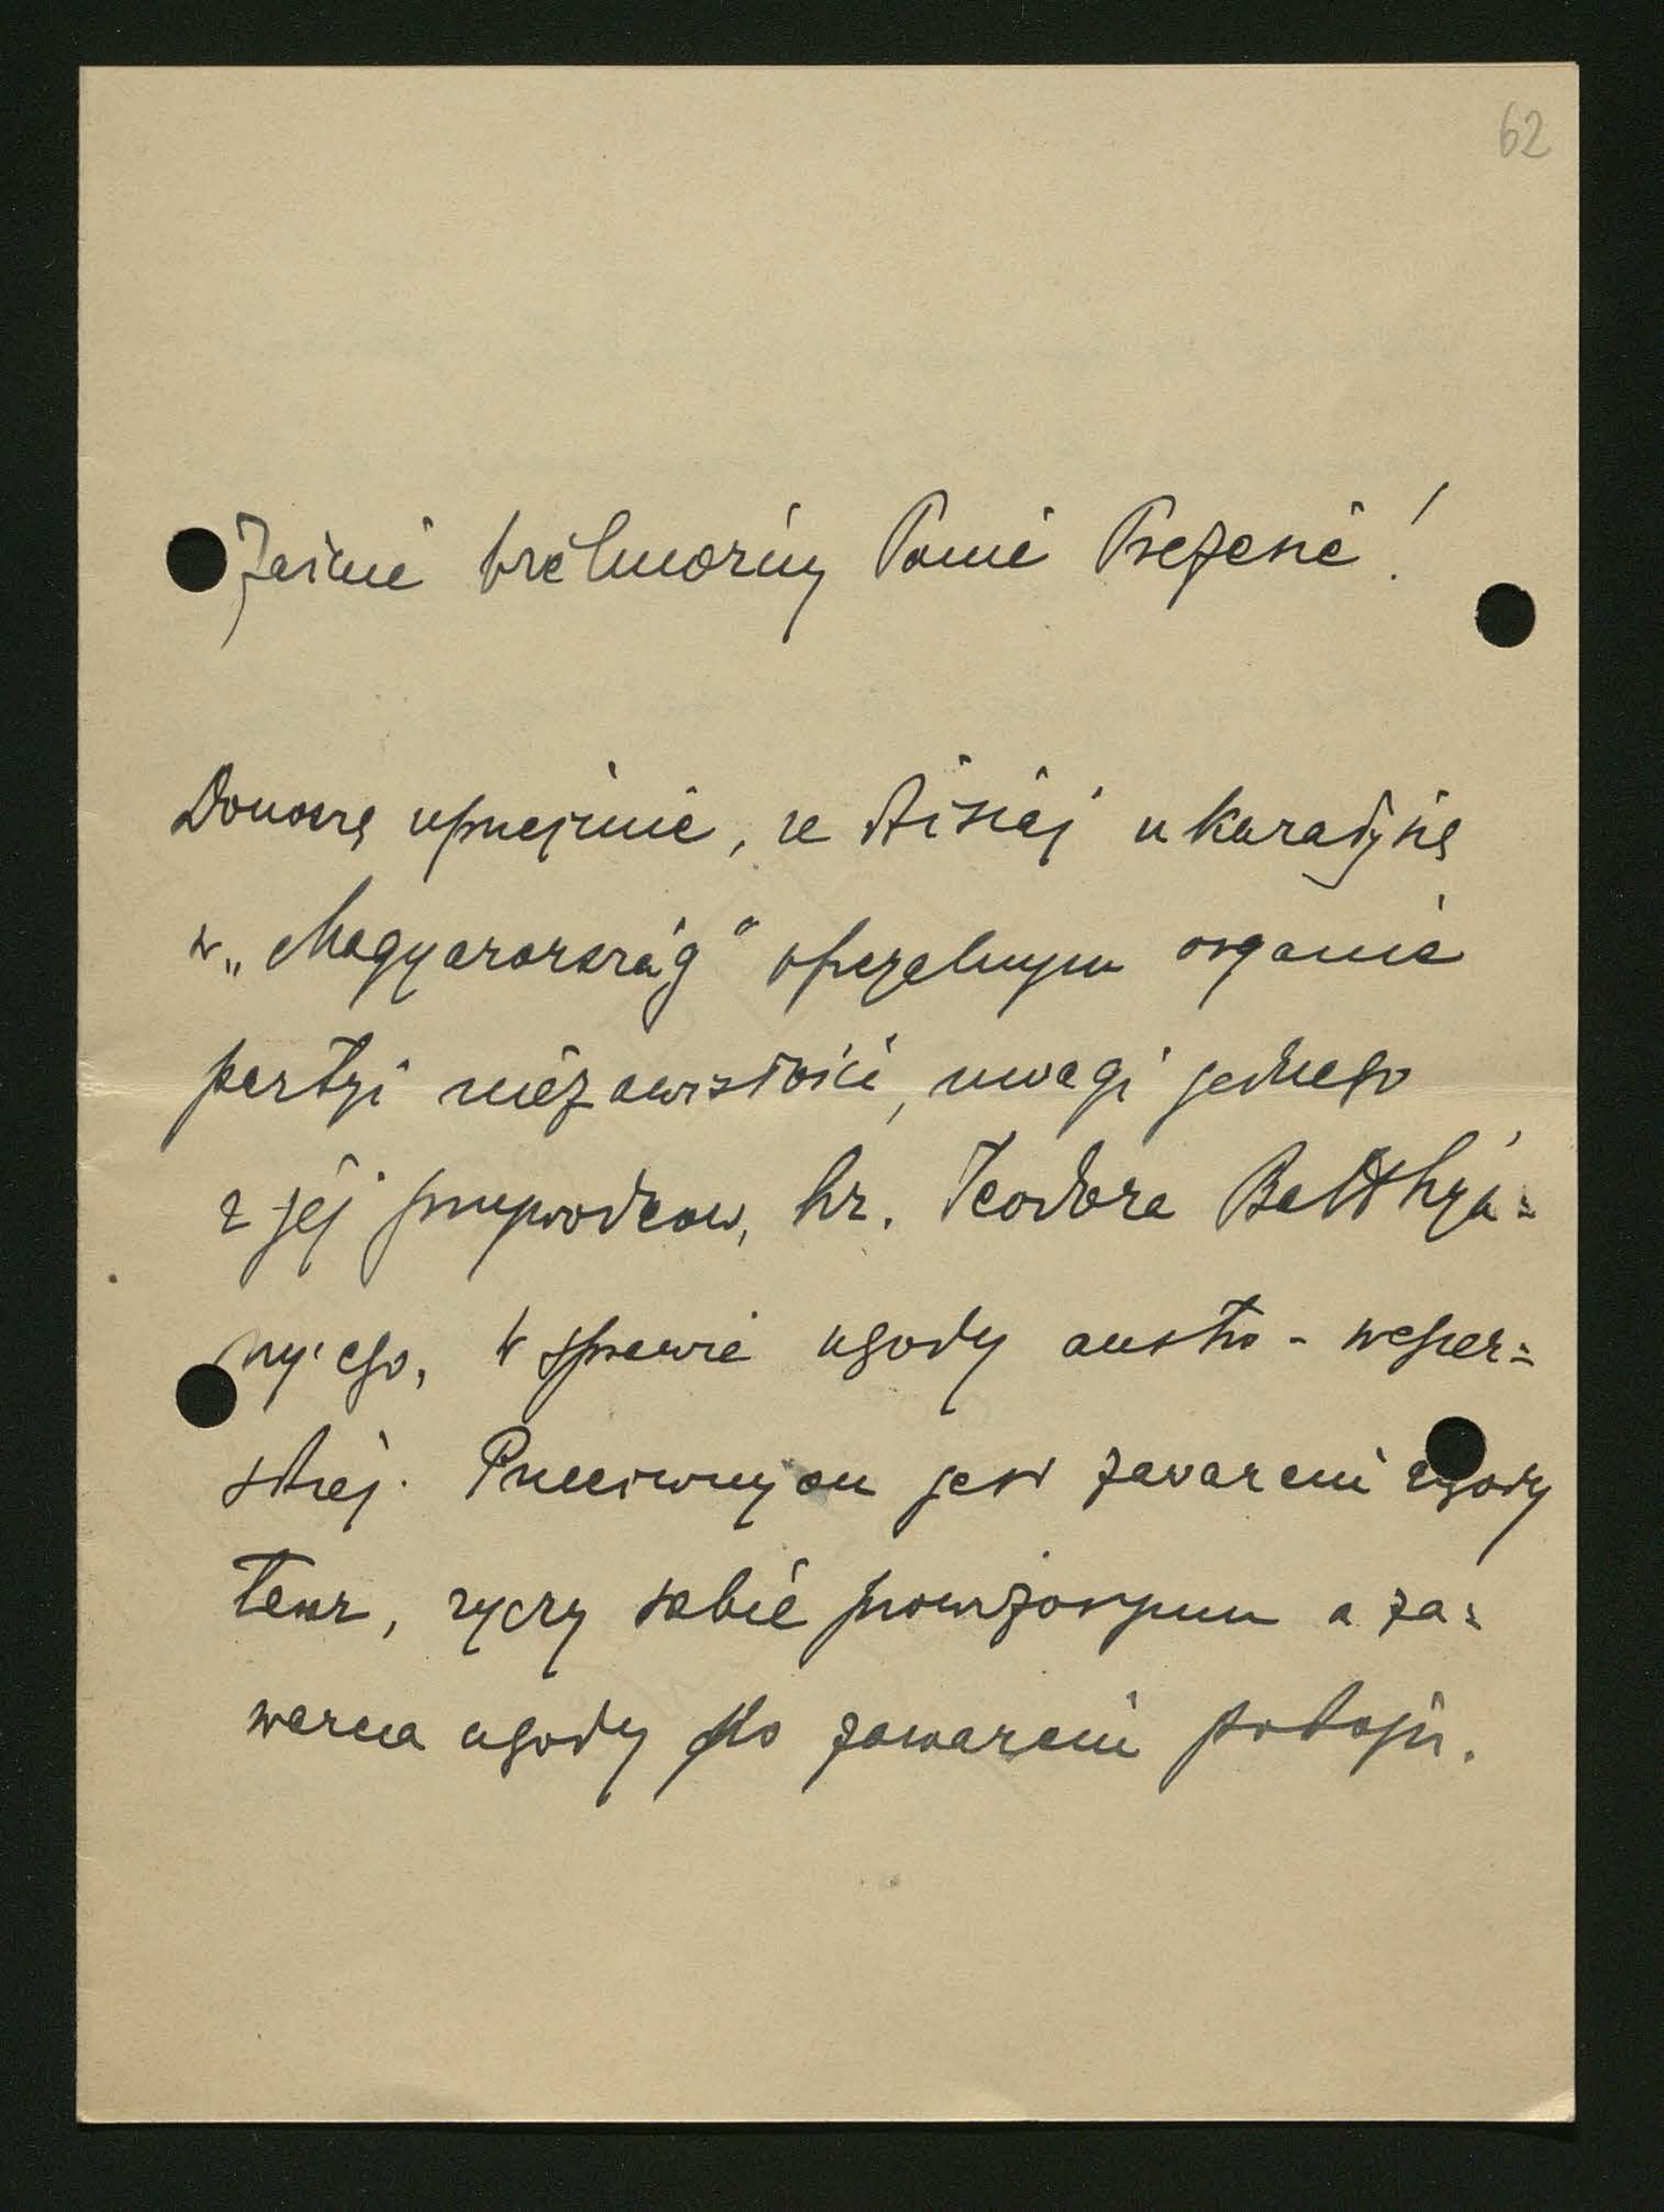 62
Jaśnie Wielmożny Panie Prezesie!
Donoszę uprzejmie, że dzisiaj ukazały się
w „Magyarország" oficyalnym organie
partyi niezawisłości, uwagi jednego
z jej przywódców, hr. Teodora Batthyá=
ny'ego, w sprawie ugody austro-węgier=
skiej. Przeciwnym on jest zawarciu ugody
teraz, życzy sobie prowizoryum a za=
warcia ugody po zawarciu pokoju.